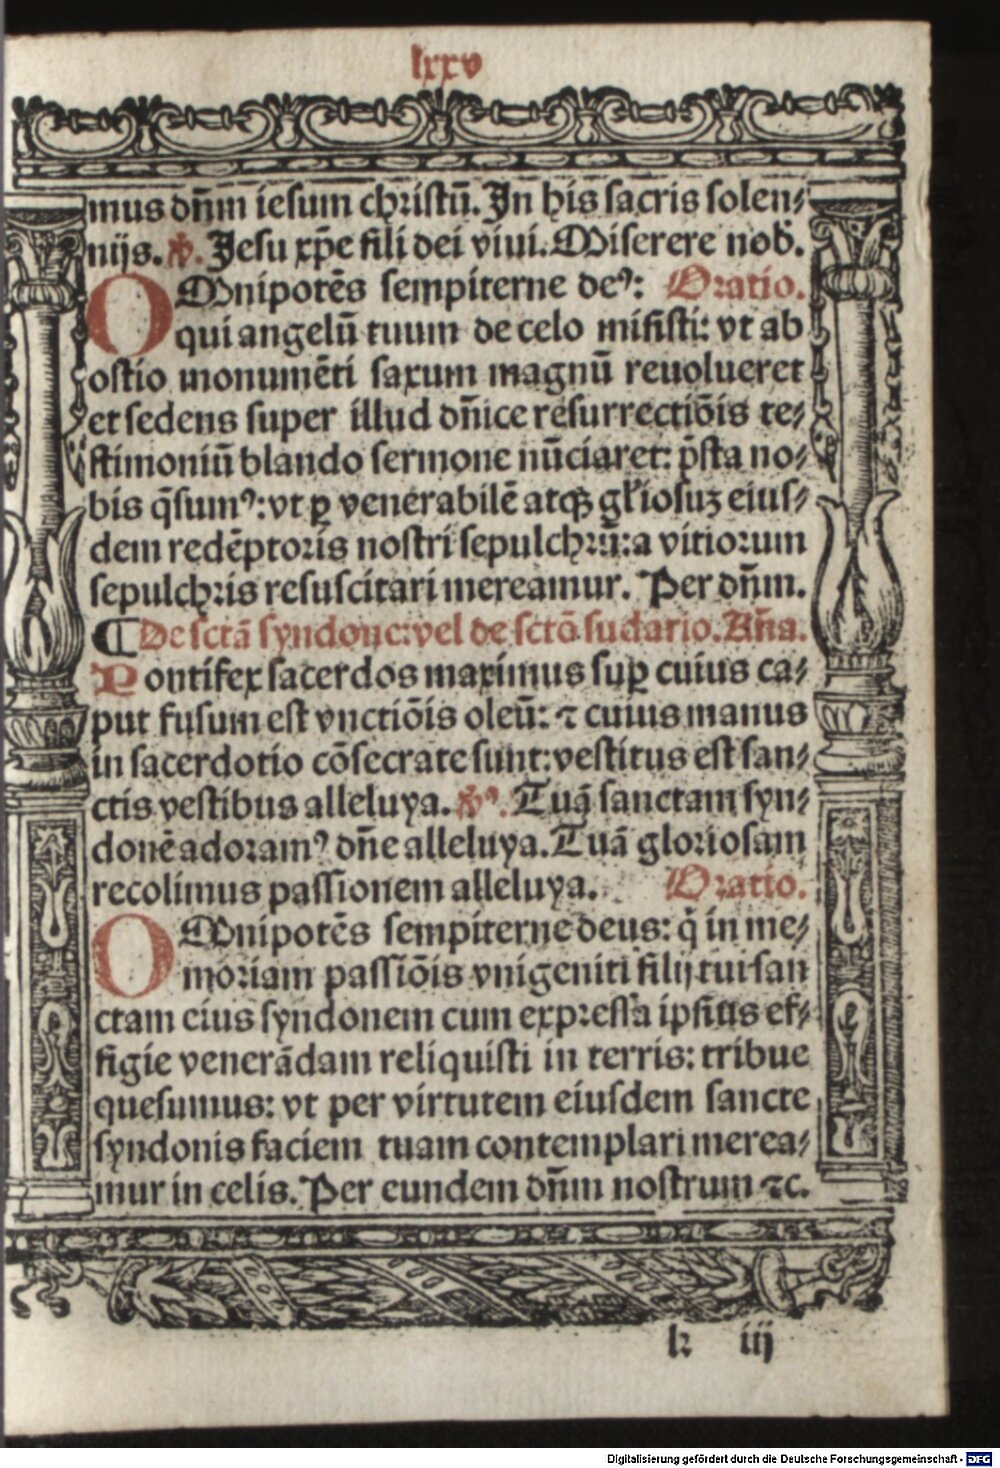 lxxv
mus dn̄m iesum christū. In his sacris solen⸗
niis. ℣. Jesu xp̄e fili dei viui. Miserere nob̄.
OMnipotēs sempiterne deꝰ: Oratio.
qui angelū tuum de celo misisti: vt ab
ostio monumēti saxum magnū reuolueret
et sedens super illud dn̄ice resurrectiōis te⸗
stimoniū blando sermone nūciaret: p̄sta no⸗
bis q̄sumꝰ: vt ꝑ venerabilē atqꝫ gl̄iosuꝫ eius⸗
dem redēptoris nostri sepulchrū: a vitiorum
sepulchris resuscitari mereamur. Per dn̄m.
¶ De sctā syndone: vel de sctō sudario. An̄a.
Pontifex sacerdos maximus suꝑ cuius ca⸗
put fusum est vnctiōis oleū: ⁊ cuius manus
in sacerdotio cōsecrate sunt: vestitus est san⸗
ctis vestibus alleluya. ℣ꝰ. Tuā sanctam syn⸗
donē adoramꝰ dn̄e alleluya. Tuā gloriosam
recolimus passionem alleluya. Oratio.
OMnipotēs sempiterne deus: q̇ in me⸗
moriam passiōis vnigeniti filij tui san
ctam eius syndonem cum expressa ipsius ef⸗
figie venerādam reliquisti in terris: tribue
quesumus: vt per virtutem eiusdem sancte
syndonis faciem tuam contemplari merea⸗
mur in celis. Per eundem dn̄m nostrum ⁊c.
k iij
Digitalisierung gefördert durch die Deutsche Forschungsgemeinschaft - DFG